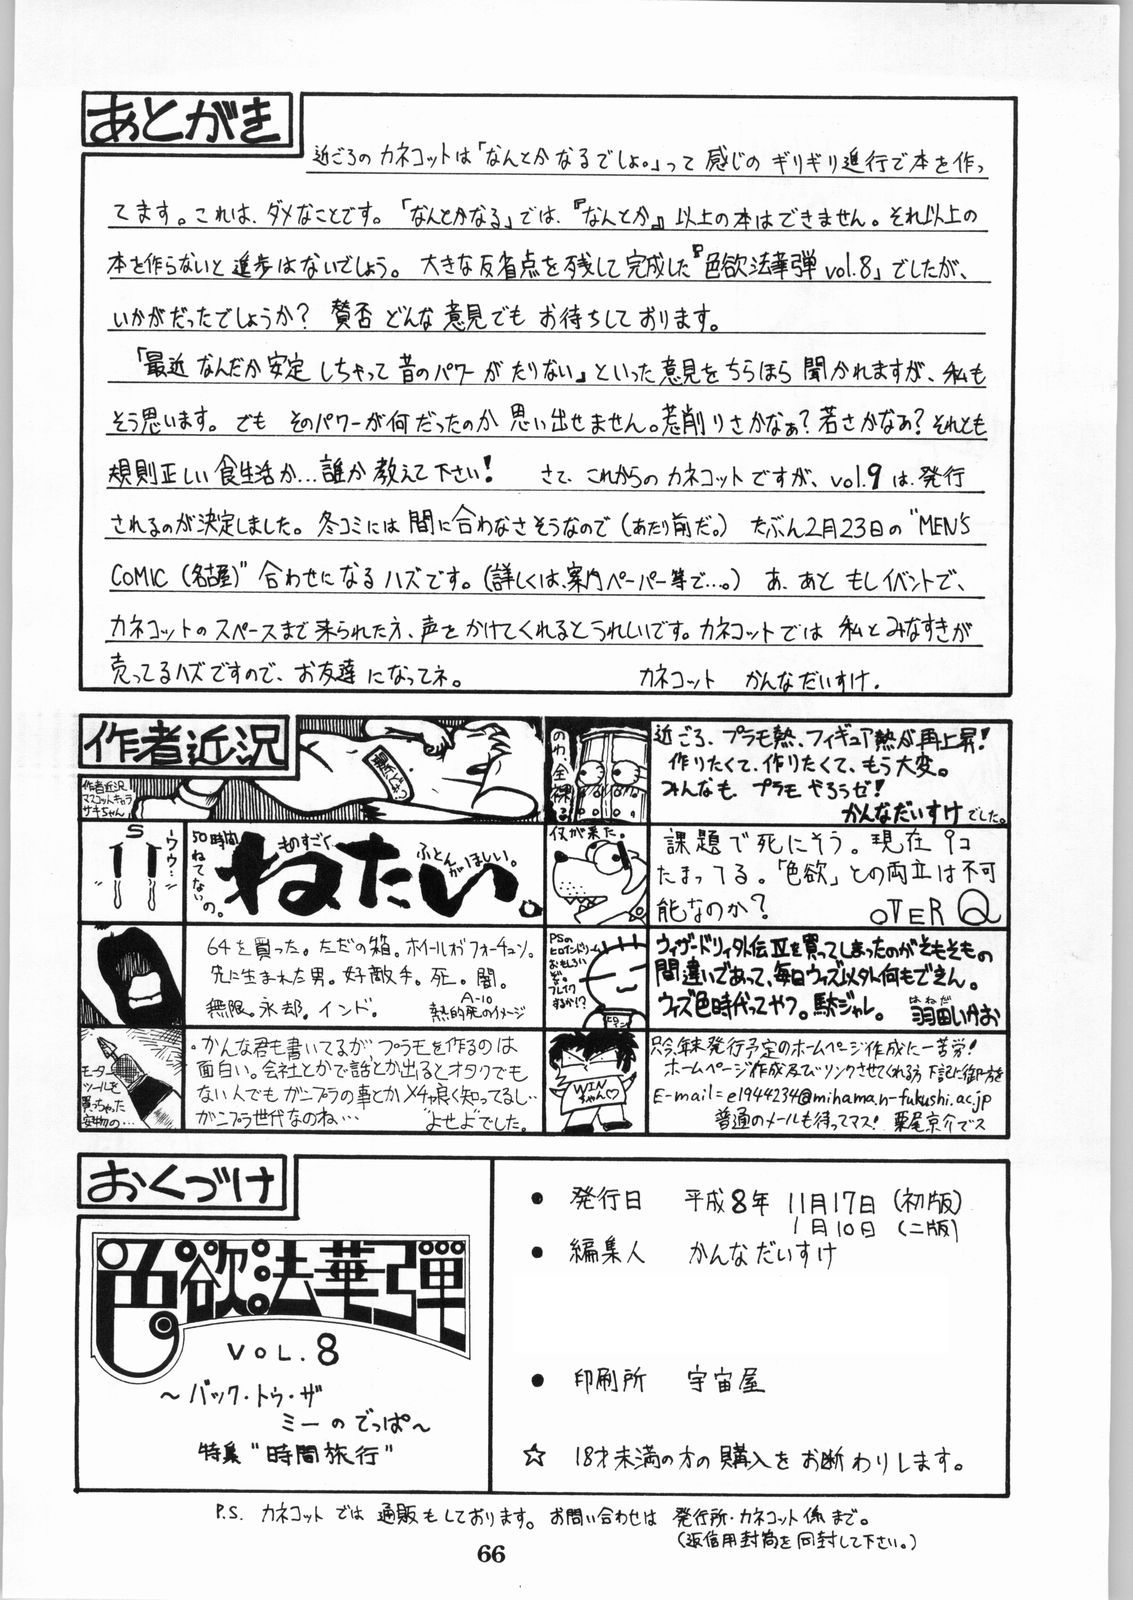 あとがき
近ごろの カネコットは「なんとか なるでしょ。」って 感じの ギリギリ進行で本を作っ
てます。これは、ダメなことです。「なんとかなる」では、『なんとか』以上の本はできません。それ以上の
本を作らないと 進歩はないでしょう。 大きな反省点を残して完成した『色欲法華弾 vol.8」でしたが、
いかがだったでしょうか? 賛否 どんな意見でも お待ちしております。
「最近 なんだか 安定 しちゃって 昔のパワーがたりない」といった意見をちらほら 聞かれますが、私も
そう思います。でも そのパワーが何だったのか 思い出せません。荒削りさかなぁ?若さかなぁ?それとも
規則正しい食生活か…誰か教えて下さい! さて、これからの カネコットですが、vol.9 は、発行
されるのが決定しました。冬コミには 間に合わなさそうなので(あたり前だ。) たぶん2月23日の "MEN'S
COMIC (名古屋)" 合わせになるハズです。(詳しくは、案内ペーパー等で…。) あ、あと もしイベントで、
カネコットのスペースまで来られた方、声をかけてくれるとうれしいです。カネコットでは 私とみなすきが
売ってるハズですので、お友達になってネ。 カネコット かんなだいすけ.
作者近況
作者近況!
マスコットキャラ
サキちゃん
のわ、全裸
近ごろ、プラモ熱、フィギュア熱が再上昇!
作りたくて、作りたくて、もう大変。
みんなも、プラモやろうぜ!
かんなだいすけでした。
S
ウウ…
50時間
ねてない
の。
ものすごく
ねたい。
ふとんがほしい。
奴が来た。
課題で死にそう。現在 9コ
たまってる。「色欲」との両立は不可
能なのか? OVER Q
64を買った。ただの箱。ホイールオブフォーチュン。
先に生まれた男。好敵手。死。闇。
無限。永却。インド。 A-10
熱的死のイメージ
PSの
ヒロインドリーム
おもしろい
ぞ。
ブレイク
するか!?
ウィザードリィ外伝Ⅳを買ってしまったのがそもそもの
間違いであって、毎日ウィズ以外何もできん。
ウィズ色時代ってやつ。駄ジャレ。 羽田いかお
はねだ
モーター
ツールを
買っちゃった
安物の…
。かんな君も書いてるが、プラモを作るのは
面白い。会社とかで話とか出るとオタクでも
ない人でもガンプラの事とかメチャ良く知ってるし…
ガンプラ世代なのね… よせよでした。
WIN
ちゃん♡
只今、年末発行予定のホームページ作成に一苦労!
ホームページ作成及びリンクさせてくれる方 下記に御一方を
E-mail=e1944234@mihama.n-fukushi.ac.jp
普通のメールも待ってマス! 栗尾京介でス
おくづけ
色欲法華弾
VOL.8
～バック・トゥ・ザ
ミーのでっぱ～
特集 "時間旅行"
● 発行日 平成8年 11月17日(初版)
1月10日(二版)
● 編集人 かんなだいすけ
● 印刷所 宇宙屋
☆ 18才未満の方の購入をお断わりします。
P.S. カネコットでは 通販もしております。お問い合わせは 発行所・カネコット係まで。
(返信用封筒を同封して下さい。)
66